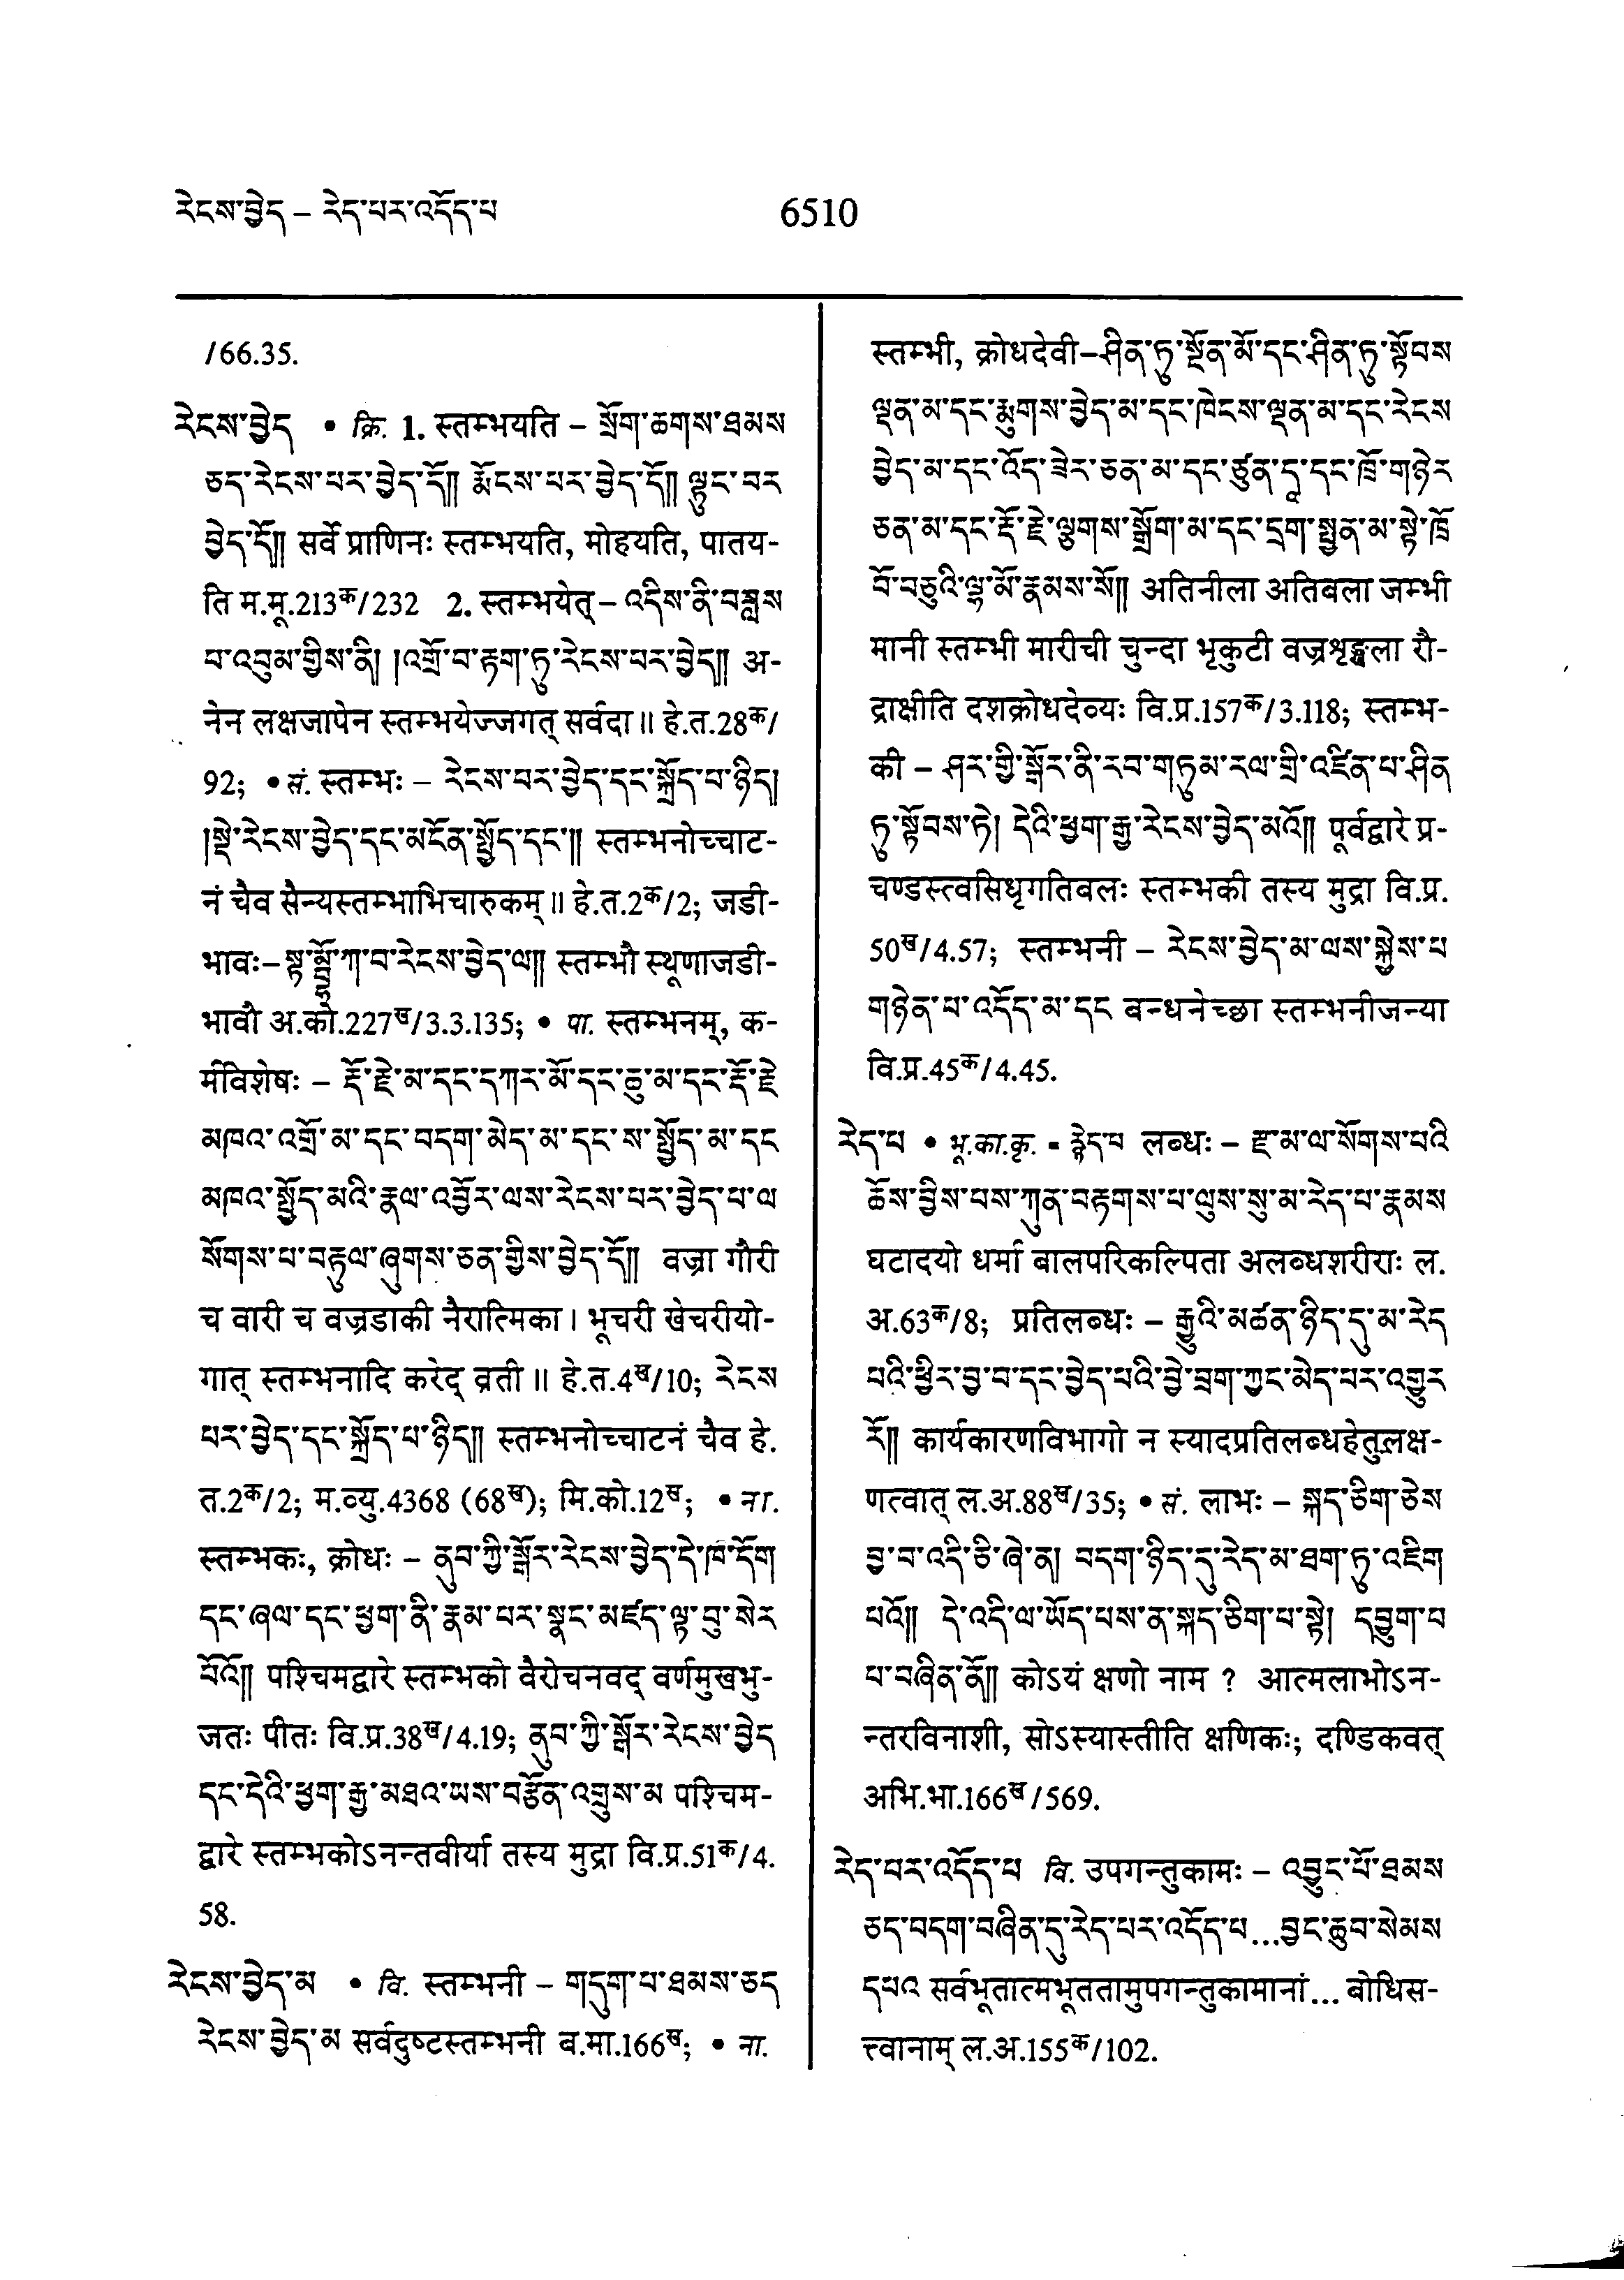 རེངས་བྱེད – རེད་པར་འདོད་པ
6510
/66.35.
རེངས་བྱེད • क्रि. 1. स्तम्भयति – སྲོག་ཆགས་ཐམས
ཅད་རེངས་པར་བྱེད་དོ༎ རྨོངས་པར་བྱེད་དོ༎ ལྟུང་བར
བྱེད་དོ༎ सर्वे प्राणिनः स्तम्भयति, मोहयति, पातय-
ति म.मू.213क/232 2. स्तम्भयेत् – འདིས་ནི་བཟླས
པ་འབུམ་གྱིས་ནི། །འགྲོ་བ་རྟག་ཏུ་རེངས་པར་བྱེད༎ अ-
नेन लक्षजापेन स्तम्भयेज्जगत् सर्वदा ॥ हे.त.28क/
92; • सं. स्तम्भः – རེངས་པར་བྱེད་དང་སྐྲོད་པ་ཉིད།
།སྡེ་རེངས་བྱེད་དང་མངོན་སྤྱོད་དང་༎ स्तम्भनोच्चाट-
नं चैव सैन्यस्तम्भाभिचारुकम् ॥ हे.त.2क/2; जडी-
भावः – སྟ་མྦྷོ་ཀ་བ་རེངས་བྱེད་ལ༎ स्तम्भौ स्थूणाजडी-
भावौ अ.को.227ख/3.3.135; • पा. स्तम्भनम्, क-
र्मविशेषः – རྡོ་རྗེ་མ་དང་དཀར་མོ་དང་ཆུ་མ་དང་རྡོ་རྗེ
མཁའ་འགྲོ་མ་དང་བདག་མེད་མ་དང་ས་སྤྱོད་མ་དང
མཁའ་སྤྱོད་མའི་རྣལ་འབྱོར་ལས་རེངས་པར་བྱེད་པ་ལ
སོགས་པ་བརྟུལ་ཞུགས་ཅན་གྱིས་བྱེད་དོ༎ वज्रा गौरी
च वारी च वज्रडाकी नैरात्मिका । भूचरी खेचरीयो-
गात् स्तम्भनादि करेद् व्रती ॥ हे.त.4ख/10; རེངས
པར་བྱེད་དང་སྐྲོད་པ་ཉིད༎ स्तम्भनोच्चाटनं चैव हे.
त.2क/2; म.व्यु.4368 (68ख); मि.को.12ख; • ना.
स्तम्भकः, क्रोधः – ནུབ་ཀྱི་སྒོར་རེངས་བྱེད་དེ་ཁ་དོག
དང་ཞལ་དང་ཕྱག་ནི་རྣམ་པར་སྣང་མཛད་ལྟ་བུ་སེར
པོའོ༎ पश्चिमद्वारे स्तम्भको वैरोचनवद् वर्णमुखभु-
जतः पीतः वि.प्र.38ख/4.19; ནུབ་ཀྱི་སྒོར་རེངས་བྱེད
དང་དེའི་ཕྱག་རྒྱ་མཐའ་ཡས་བརྩོན་འགྲུས་མ पश्चिम-
द्वारे स्तम्भकोऽनन्तवीर्या तस्य मुद्रा वि.प्र.51क/4.
58.
རེངས་བྱེད་མ • वि. स्तम्भनी – གདུག་པ་ཐམས་ཅད
རེངས་བྱེད་མ सर्वदुष्टस्तम्भनी ब.मा.166ख; • ना.
स्तम्भी, क्रोधदेवी – ཤིན་ཏུ་སྔོན་མོ་དང་ཤིན་ཏུ་སྟོབས
ལྡན་མ་དང་རྨུགས་བྱེད་མ་དང་ཁེངས་ལྡན་མ་དང་རེངས
བྱེད་མ་དང་འོད་ཟེར་ཅན་མ་དང་ཙུན་དཱ་དང་ཁྲོ་གཉེར
ཅན་མ་དང་རྡོ་རྗེ་ལྕགས་སྒྲོག་མ་དང་དྲག་སྤྱན་མ་སྟེ་ཁྲོ
བོ་བཅུའི་ལྷ་མོ་རྣམས་སོ༎ अतिनीला अतिबला जम्भी
मानी स्तम्भी मारीची चुन्दा भृकुटी वज्रशृङ्खला रौ-
द्राक्षीति दशक्रोधदेव्यः वि.प्र.157क/3.118; स्तम्भ-
की – ཤར་གྱི་སྒོར་ནི་རབ་གཏུམ་རལ་གྲི་འཛིན་པ་ཤིན
ཏུ་སྟོབས་ཏེ། དེའི་ཕྱག་རྒྱ་རེངས་བྱེད་མའོ༎ पूर्वद्वारे प्र-
चण्डस्त्वसिधृगतिबलः स्तम्भकी तस्य मुद्रा वि.प्र.
50ख/4.57; स्तम्भनी – རེངས་བྱེད་མ་ལས་སྐྱེས་པ
གཉེན་པ་འདོད་མ་དང बन्धनेच्छा स्तम्भनीजन्या
वि.प्र.45क/4.45.
རེད་པ • भू.का.कृ. = རྙེད་པ लब्धः – རྫ་མ་ལ་སོགས་པའི
ཆོས་བྱིས་པས་ཀུན་བརྟགས་པ་ལུས་སུ་མ་རེད་པ་རྣམས
घटादयो धर्मा बालपरिकल्पिता अलब्धशरीराः ल.
अ.63क/8; प्रतिलब्धः – རྒྱུའི་མཚན་ཉིད་དུ་མ་རེད
པའི་ཕྱིར་བྱ་བ་དང་བྱེད་པའི་བྱེ་བྲག་ཀྱང་མེད་པར་འགྱུར
རོ༎ कार्यकारणविभागो न स्यादप्रतिलब्धहेतुलक्ष-
णत्वात् ल.अ.88ख/35; • सं. लाभः – སྐད་ཅིག་ཅེས
བྱ་བ་འདི་ཅི་ཞེ་ན། བདག་ཉིད་དུ་རེད་མ་ཐག་ཏུ་འཇིག
པའོ༎ དེ་འདི་ལ་ཡོད་པས་ན་སྐད་ཅིག་པ་སྟེ། དབྱུག་པ
པ་བཞིན་ནོ༎ कोऽयं क्षणो नाम ? आत्मलाभोऽन-
न्तरविनाशी, सोऽस्यास्तीति क्षणिकः; दण्डिकवत्
अभि.भा.166ख/569.
རེད་པར་འདོད་པ वि. उपगन्तुकामः – འབྱུང་པོ་ཐམས
ཅད་བདག་བཞིན་དུ་རེད་པར་འདོད་པ...བྱང་ཆུབ་སེམས
དཔའ सर्वभूतात्मभूततामुपगन्तुकामानां... बोधिस-
त्त्वानाम् ल.अ.155क/102.